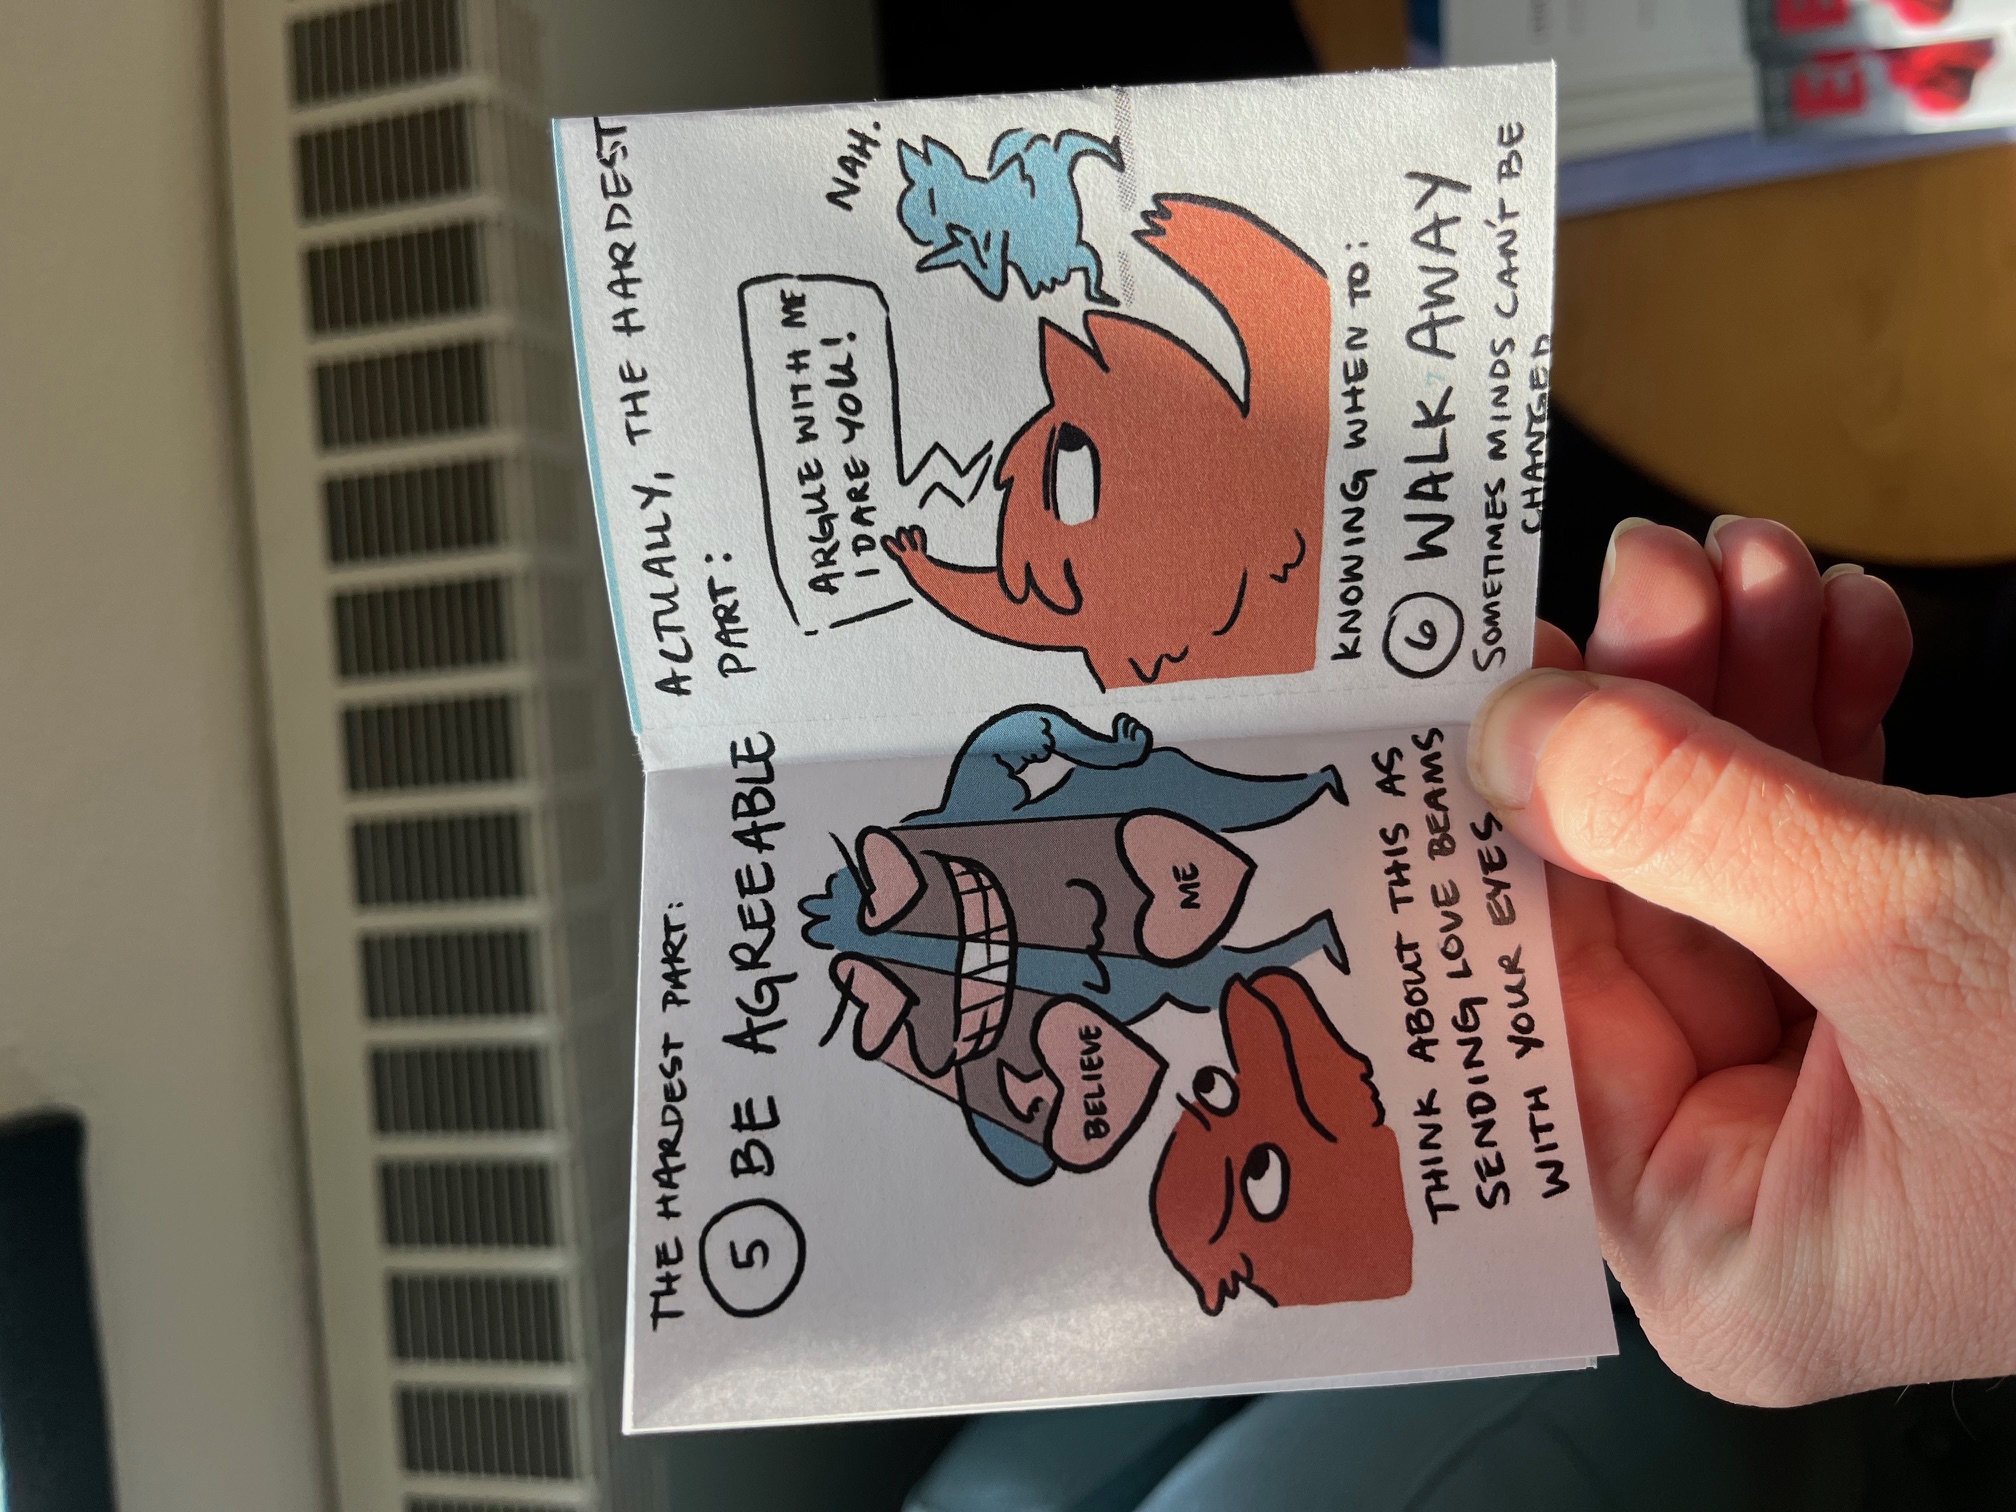 THE HARDEST PART:
5 BE AGREEABLE
BELIEVE
ME
THINK ABOUT THIS AS
SENDING LOVE BEAMS
WITH YOUR EYES
ACTUALLY, THE HARDEST
PART:
ARGUE WITH ME
I DARE YOU!
NAH.
KNOWING WHEN TO:
6 WALK AWAY
7
SOMETIMES MINDS CAN'T BE
CHANGED